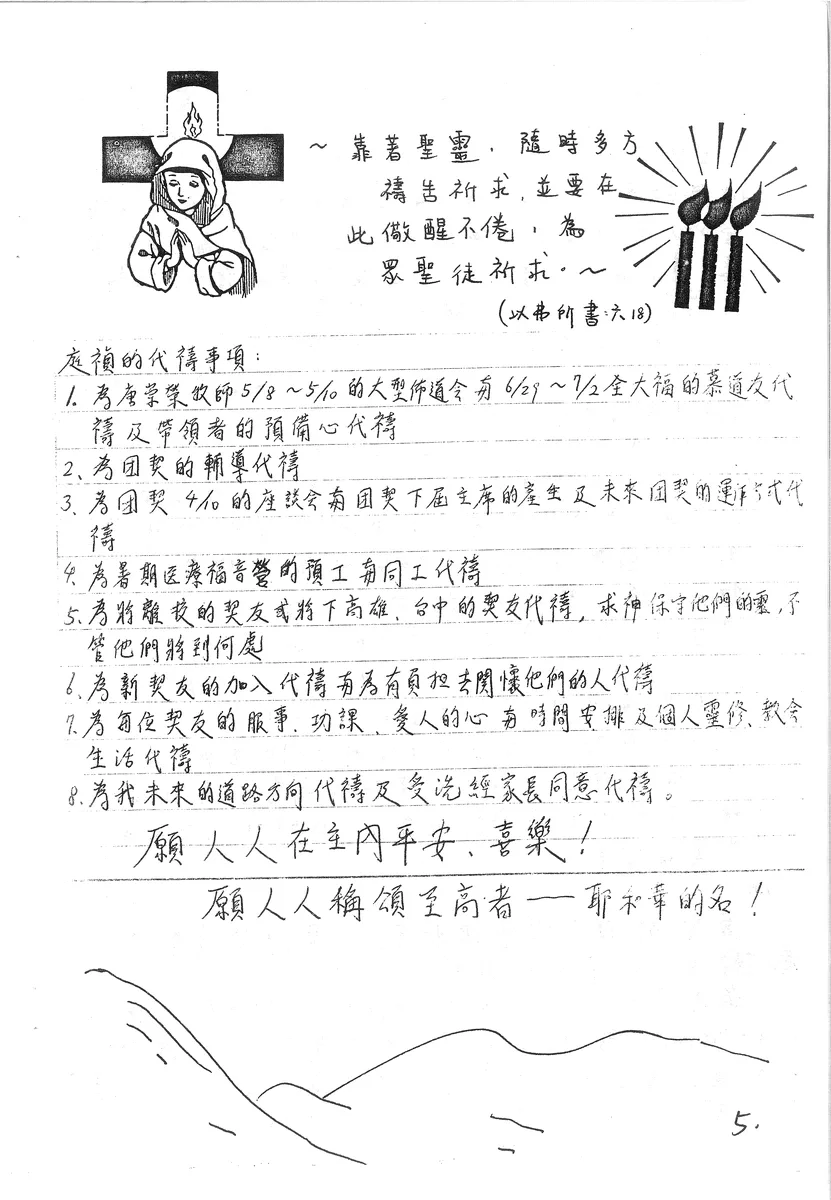 ~ 靠著聖靈，隨時多方
禱告祈求，並要在
此儆醒不倦，為
眾聖徒祈求。~
(以弗所書:六18)
庭禎的代禱事項：
1. 為唐崇榮牧師5/8～5/10的大型佈道会与6/29～7/2全大福的慕道友代
禱及帶領者的預備心代禱
2、為团契的輔導代禱
3、為团契 4/10 的座談会与团契下屆主席的產生及未來团契的運作方式代
禱
4、為暑期医療福音營的預工与同工代禱
5、為將離校的契友或將下高雄、台中的契友代禱，求神保守他們的靈，不
管他們將到何處
6、為新契友的加入代禱与為有負担去関懷他們的人代禱
7、為每位契友的服事、功課、愛人的心与時間安排及個人靈修、教会
生活代禱
8、為我未來的道路方向代禱及受洗經家長同意代禱。
願人人在主內平安、喜樂！
願人人稱頌至高者──耶和華的名！
5.